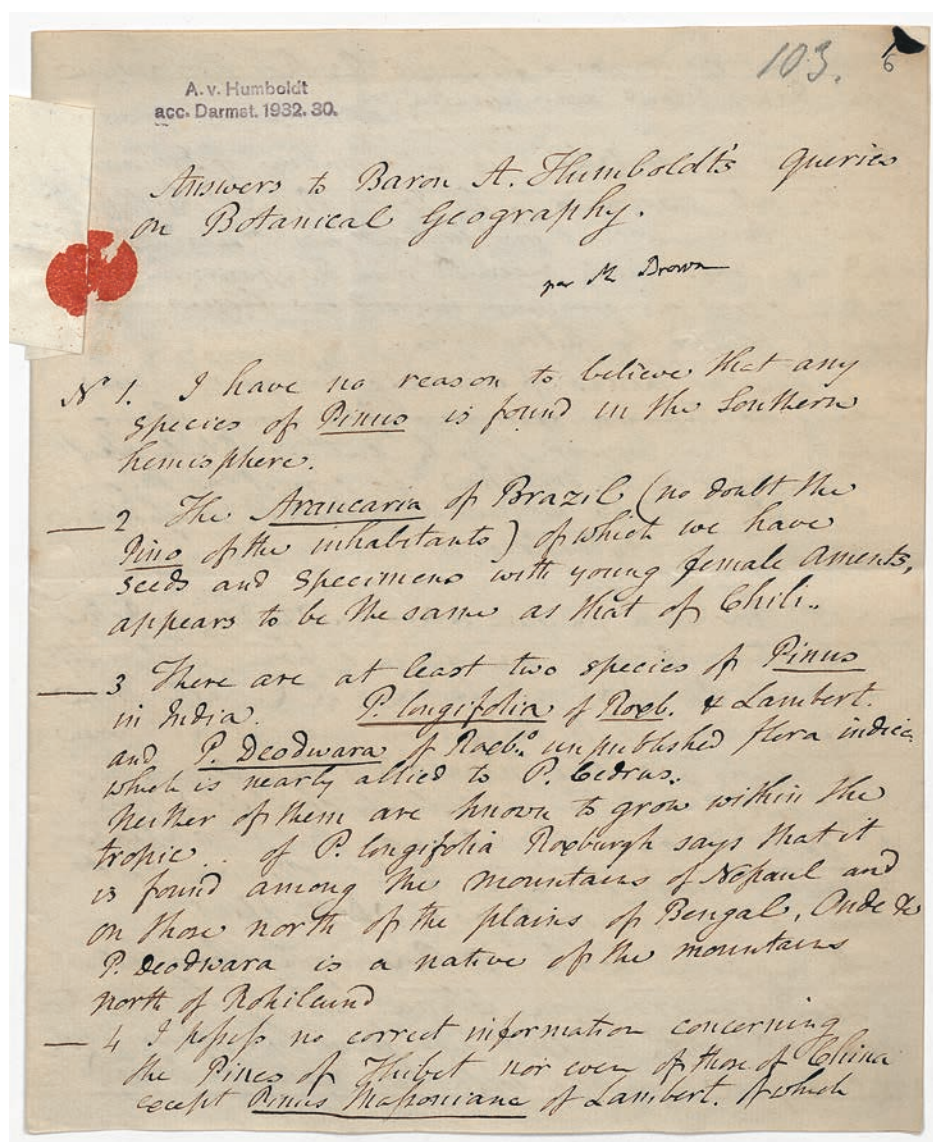 103.
6
A. v. Humboldt
acc. Darmst. 1932. 30.
Answers to Baron A. Humboldt's Queries
on Botanical Geography.
par M Brown
No 1. I have no reason to believe that any
species of Pinus is found in the Southern
hemisphere.
— 2 The Araucaria of Brazil (no doubt the
Pino of the inhabitants) of which we have
seeds and specimens with young female Aments,
appears to be the same as that of Chili..
— 3 There are at least two species of Pinus
in India. P. longifolia of Roxb. & Lambert.
and P. Deodwara of Roxb.o unpublished flora indica
which is nearly allied to P. Cedrus.
Neither of them are known to grow within the
tropic.. of P. longifolia Roxburgh says that it
is found among the mountains of Nepaul and
on those north of the plains of Bengal, Oude &c
P. Deodwara is a native of the mountains
north of Rohilcund
— 4 I possess no correct information concerning
the Pines of Thibet nor even of those of China
except Pinus Massoniana of Lambert. of which